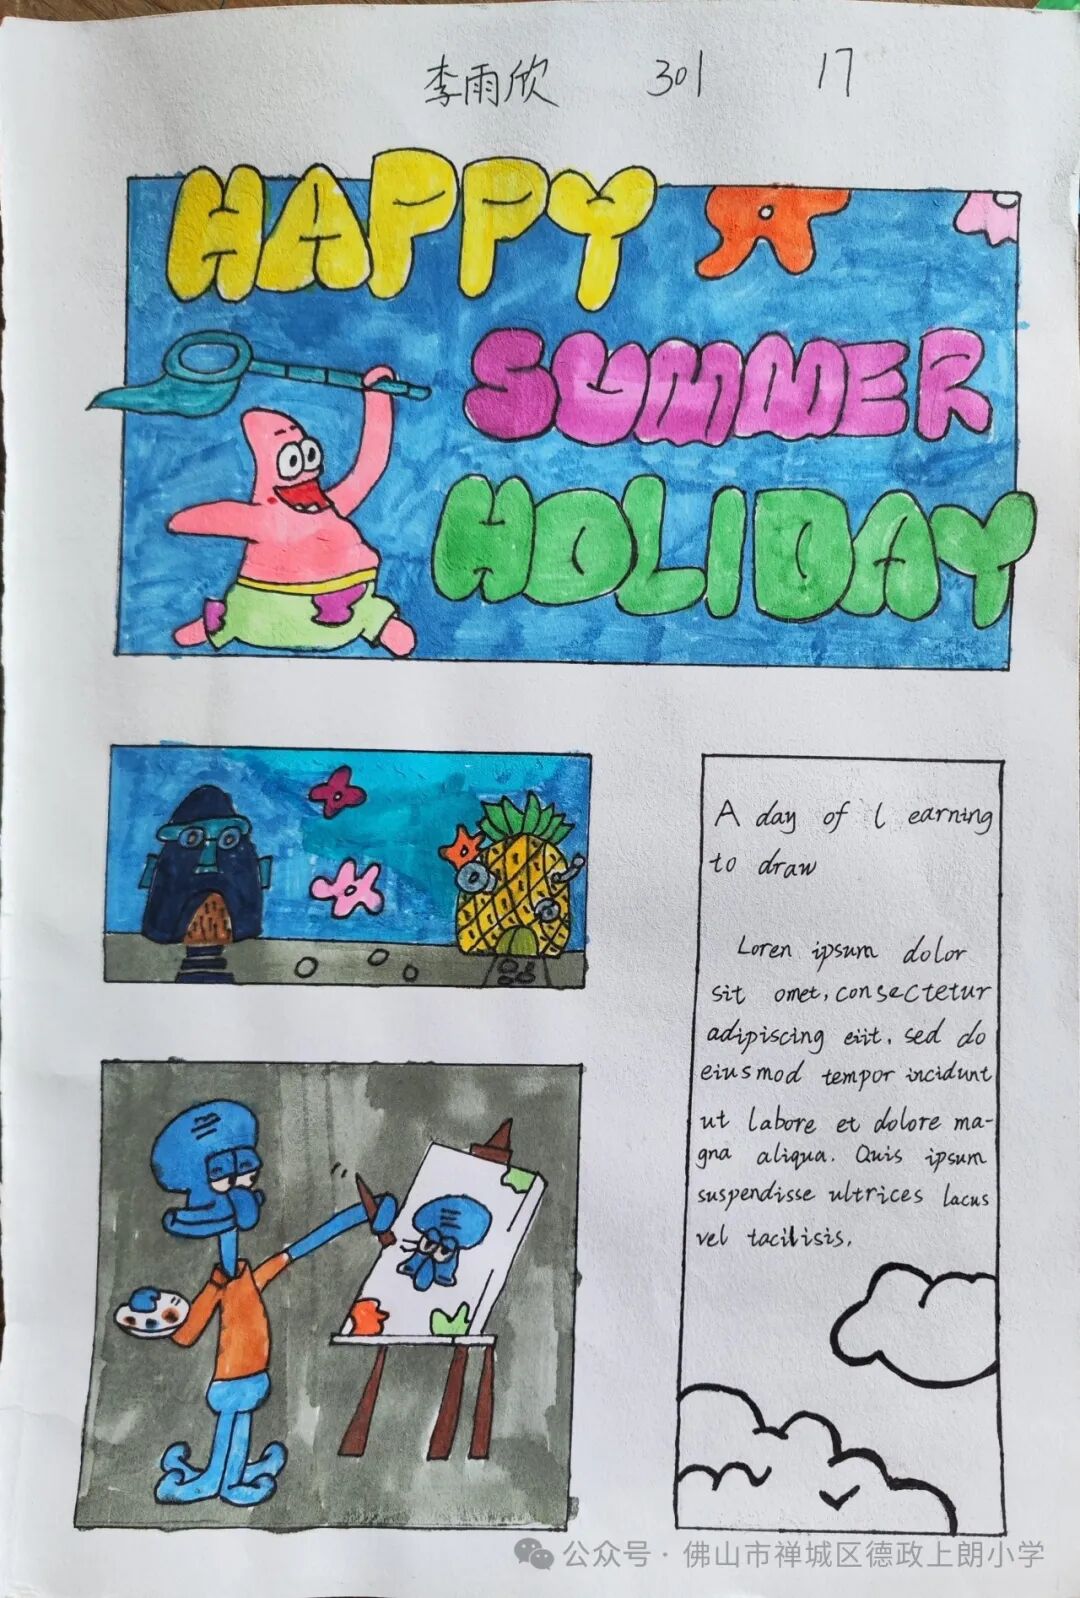 李雨欣 301 17
HAPPY
SUMMER
HOLIDAY
A day of l earning
to draw
Loren ipsum dolor
sit omet, consectetur
adipiscing eiit, sed do
eiusmod tempor incidunt
ut labore et dolore ma-
gna aliqua. Quis ipsum
suspendisse ultrices lacus
vel tacilisis.
公众号·佛山市禅城区德政上朗小学